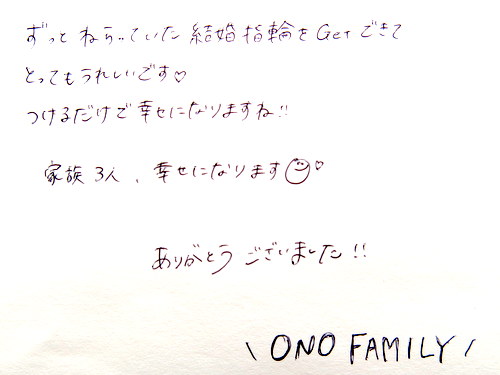 ずっと ねらっていた 結婚指輪を Getできて
とってもうれしいです♡
つけるだけで幸せになりますね!!
家族3人、幸せになります☺♡
ありがとう ございました!!
\ ONO FAMILY /